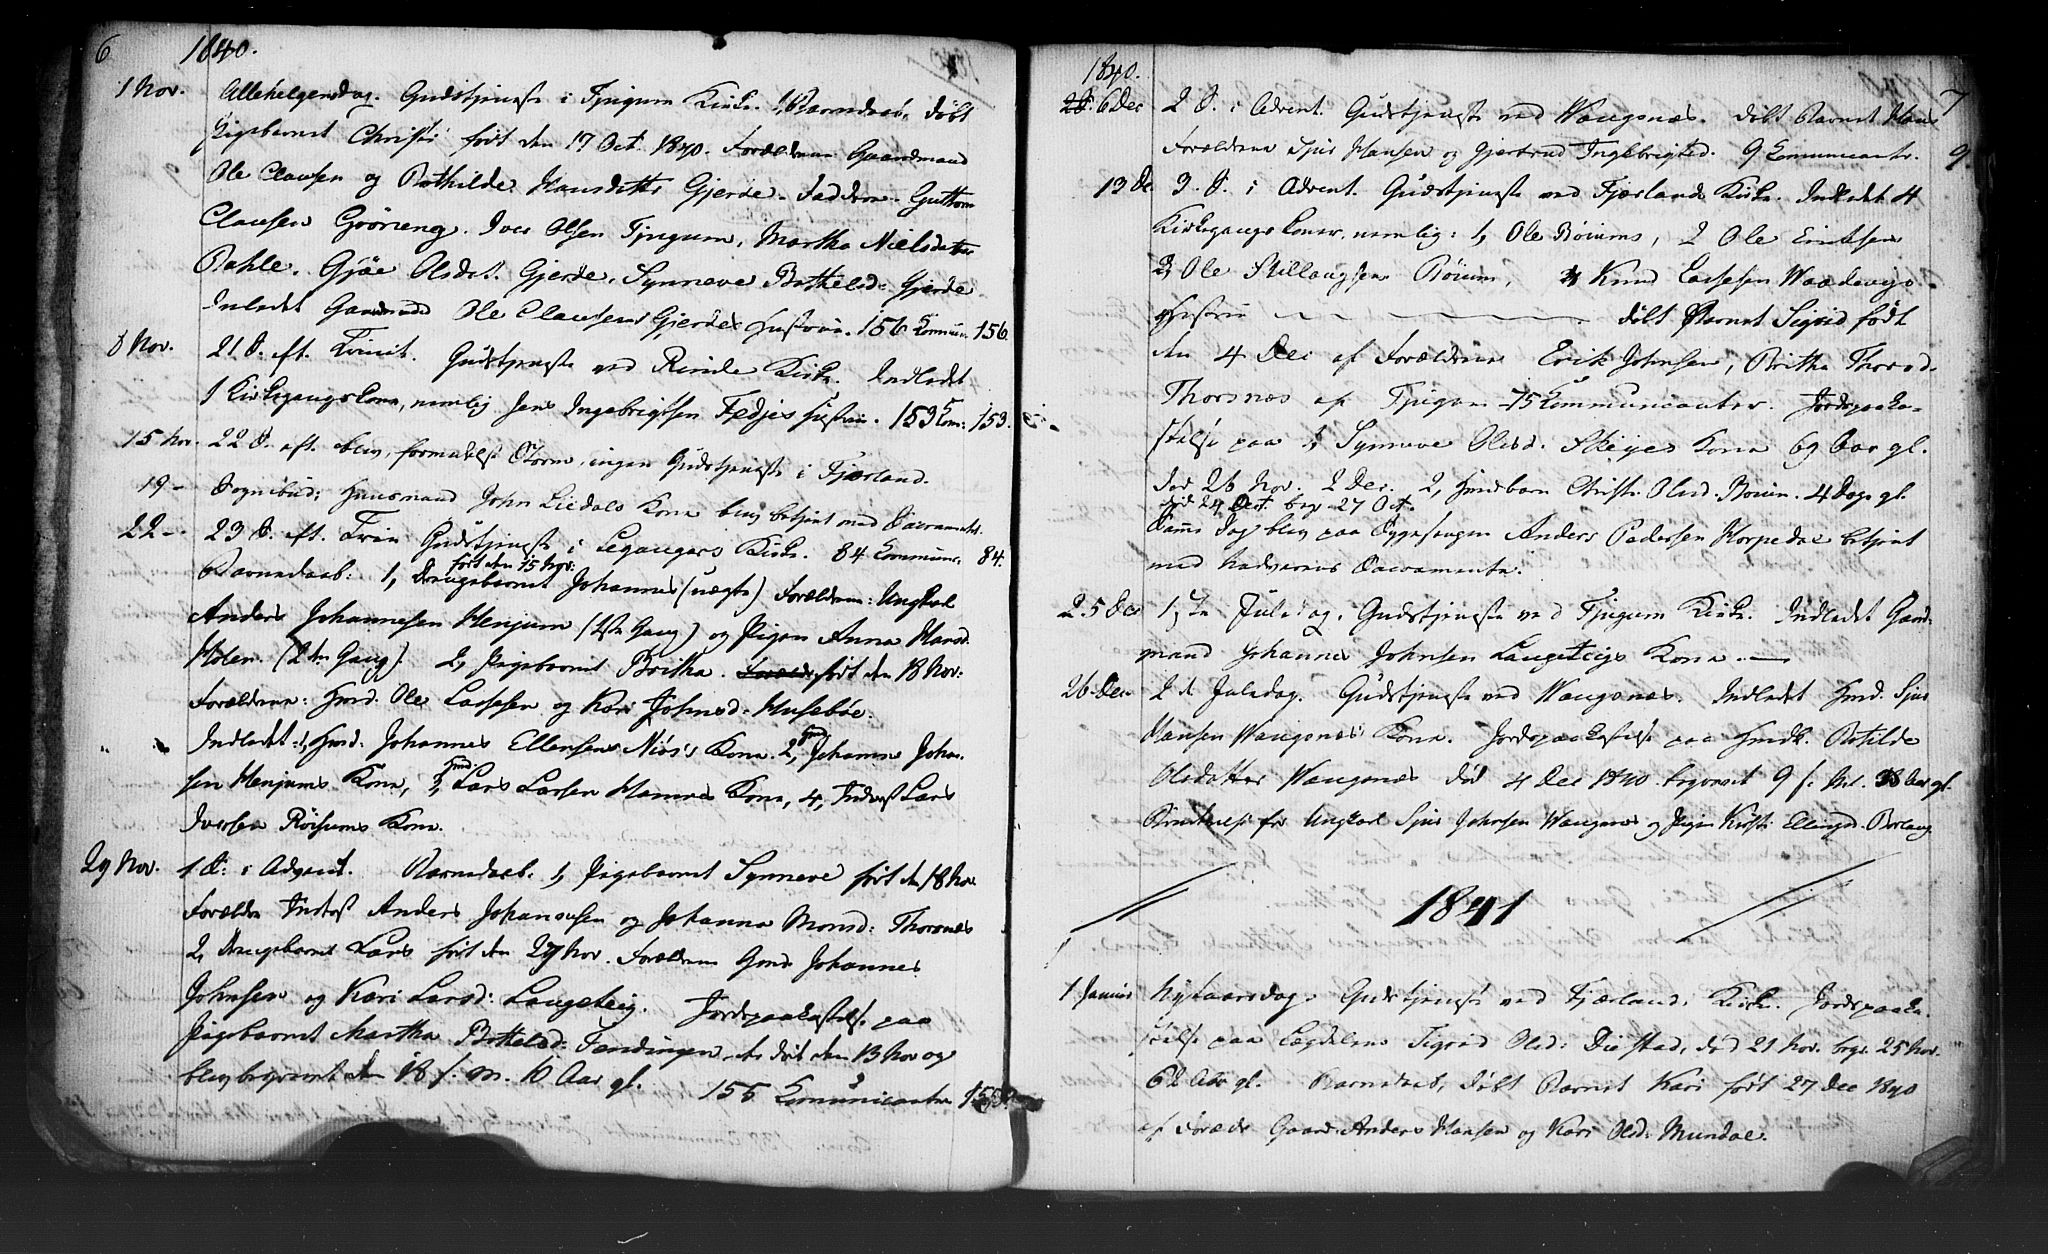 6 1840.
1 Nov. Allehelgensdag. Gudstjeneste i Tjugum Kirke. 1, Barnedaab, døbt
Pigebarnet Christi født den 17 Oct. 1840. Forældrene Gaardmand
Ole Clausen og Bothilde Hansdatter Gjerde. Faddere Guttorm
Clausen Grøneng. Iver Olsen Tjugum, Martha Nielsdatter
Bahle. Gjøe Olsdat. Gjerde, Synneve Bottelsd. Gjerde
Indledet Gaardmand Ole Clausens Gjerdes Hustrue. 156 Commun. 156.
8 Nov. 21 S. eft. Trinit. Gudstjeneste ved Rinde Kirke. Indledet
1 Kirkegangskone, nemlig Jens Ingebrigtsen Fedjes Hustrue. 153 Com: 153.
15 Nov. 22 S. eft. blev, formedelst Storm, ingen Gudstjeneste i Fjærland.
19 - Sognebud: Huusmand John Liedals Kone blev betjent med Sacramentet.
22 - 23 S. eft. Trin Gudstjeneste i Leganger Kirke. 84 Commun. 84.
født den 15 Nov:
Barnedaab: 1, Drengebarnet Johannes (uægte) Forældrene: Ungkarl
Anders Johannesen Henjum (1ste Gang) og Pigen Anna Hansd.
Holen. (2den Gang). 2, Pigebarnet Britha. født den 18 Nov:
Forældrene: Hmd. Ole Lassesen og Kari Johnsd: Husebøe:
Indledet: 1, Hmd: Johannes Ellensens Niøs's Kone. 2, Hmd Johannes Johan
sen Henjums Kone, 3, Hmd Lars Larsen Hamres Kone, 4, Inderst Lars
Iversen Røisums Kone.
29 Nov. 1 S: i Advent. Barnedaab: 1, Pigebarnet Synneve født den 18 Nov
Forældre Inderst Anders Johannesen og Johanna Monsd: Thorsnæs
2, Drengebarnet Lars født den 27 Nov. Forældrene Gmd. Johannes
Johnsen og Kari Larsd: Langeteig. Jordspaakastelse paa
Pigebarnet Martha Bottelsd: Tendingen, død den 13 Nov og
blev begravet den 18 s. M. 10 Aar gl. 155 Communicanter 155.
1840. 7
6 Dec 2 S. i Advent. Gudstjeneste ved Wangsnæs. døbt Barnet Hans
Forældrene Sjur Hansen og Gjertrud Ingebrigtsd. 9 Communicanter. 9.
13 De 3. S. i Advent. Gudstjeneste ved Fjærlands Kirke. Indledet 4
Kirkegangskoner, nemlig: 1, Ole Bøiums, 2 Ole Eriksens
3, Ole Stillaugsens Bøium, 4 Knud Lassesen
Hustrue døbt Barnet Sigrid født
den 4 Dec af Forældrene Erik Johnsen, Britha Thorsd.
Thorsnæs af Tjugum 75 Communicanter. Jordspaaka-
stelse paa 1, Synneve Olsd. Skeies Kone 69 Aar gl.
død 26 Nov. 2 Dec. 2, Christi Olsd. Bøium. 4 Dage gl.
død 24 Oct. begr 27 Oct.
Samme Dag blev paa Sygesengen Anders Pedersen Horpedal betjent
med Nadverens Sacramente.
25 Dec 1ste Juledag. Gudstjeneste ved Tjugum Kirke. Indledet Gaard-
mand Johannes Johnsen Langeteigs Kone.
26 Dec 2d Juledag. Gudstjeneste ved Wangsnæs. Indledet Hmd. Sjur
Hansen Wangsnæs' Kone. Jordspaakastelse paa Hmdk. Botilde
Olsdatter Wangsnæs død 4 Dec 1840 begravet 9 s. M. 38 Aar gl.
for Ungkarl Sjur Johnsen Wangsnæs og Pigen Kirsti Ellingsd. Berlaug
1841
1 Januar Nytaarsdag. Gudstjeneste ved Fjærlands Kirke. Jordspaaka-
stelse paa Sigrid Olsd: død 21 Nov. begr 25 Nov.
62 Aar gl. Barnedaab, døbt Barnet Kari født 27 Dec 1840
af Forældre Gaardm. Anders Hansen og Kari Olsd. Mundal.